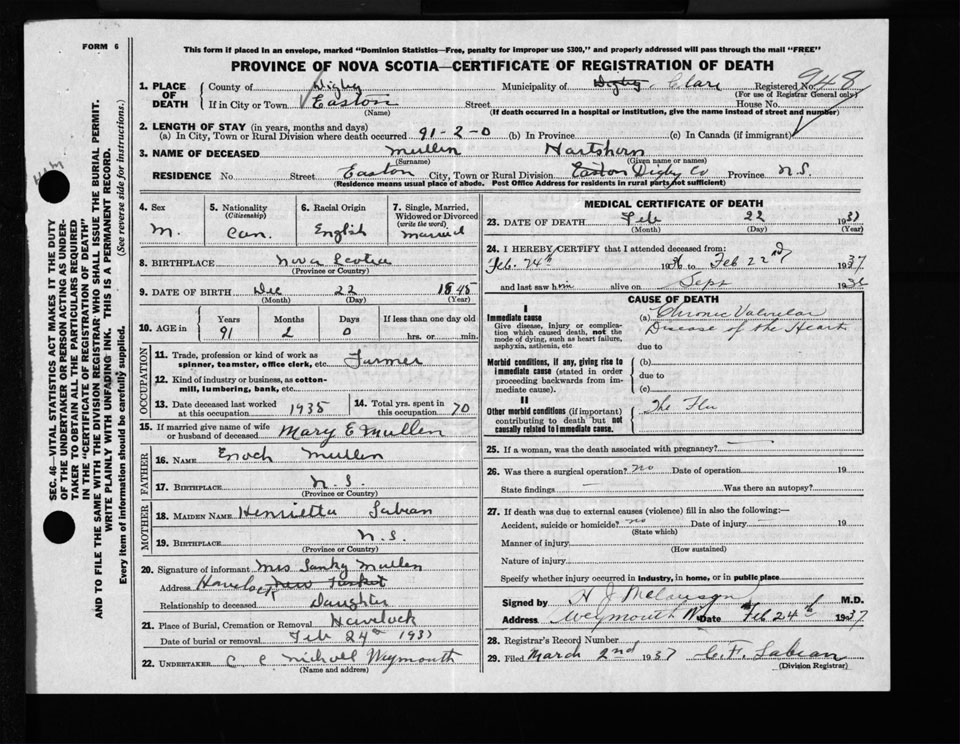 FORM 6
This form if placed in an envelope, marked "Dominion Statistics—Free, penalty for improper use $300," and properly addressed will pass through the mail "FREE"
PROVINCE OF NOVA SCOTIA—CERTIFICATE OF REGISTRATION OF DEATH
SEC. 46—VITAL STATISTICS ACT MAKES IT THE DUTY
OF THE UNDERTAKER OR PERSON ACTING AS UNDER-
TAKER TO OBTAIN ALL THE PARTICULARS REQUIRED
IN THE "CERTIFICATE OF REGISTRATION OF DEATH"
AND TO FILE THE SAME WITH THE DIVISION REGISTRAR WHO SHALL ISSUE THE BURIAL PERMIT.
WRITE PLAINLY WITH UNFADING INK. THIS IS A PERMANENT RECORD.
Every item of information should be carefully supplied. (See reverse side for instructions.)
1. PLACE OF DEATH County of Digby Municipality of Digby Clare Registered No. 948
(For use of Registrar General only)
If in City or Town Easton Street House No.
(Name) (If death occurred in a hospital or institution, give the name instead of street and number)
2. LENGTH OF STAY (in years, months and days)
(a) In City, Town or Rural Division where death occurred 91-2-0 (b) In Province (c) In Canada (if immigrant)
3. NAME OF DECEASED Mullen Hartshorn
(Surname) (Given name or names)
RESIDENCE No. Street Easton City, Town or Rural Division Easton Digby Co Province N.S.
(Residence means usual place of abode. Post Office Address for residents in rural parts not sufficient)
4. Sex M.
5. Nationality (Citizenship) Can.
6. Racial Origin English
7. Single, Married, Widowed or Divorced (write the word) Married
8. BIRTHPLACE Nova Scotia
(Province or Country)
9. DATE OF BIRTH Dec 22 1845
(Month) (Day) (Year)
10. AGE in Years Months Days If less than one day old
91 2 0 hrs. or min.
OCCUPATION
11. Trade, profession or kind of work as spinner, teamster, office clerk, etc. Farmer
12. Kind of industry or business, as cotton-mill, lumbering, bank, etc.
13. Date deceased last worked at this occupation 1935
14. Total yrs. spent in this occupation 70
15. If married give name of wife or husband of deceased Mary E Mullen
FATHER
16. NAME Enoch Mullen
17. BIRTHPLACE N.S.
(Province or Country)
MOTHER
18. MAIDEN NAME Henrietta Sabean
19. BIRTHPLACE N.S.
(Province or Country)
20. Signature of informant Mrs Sanky Mullen
Address Havelock New Tusket
Relationship to deceased Daughter
21. Place of Burial, Cremation or Removal Havelock
Date of burial or removal Feb 24th 1937
22. UNDERTAKER Nicholl Weymouth
(Name and address)
MEDICAL CERTIFICATE OF DEATH
23. DATE OF DEATH Feb 22 1937
(Month) (Day) (Year)
24. I HEREBY CERTIFY that I attended deceased from:
Feb. 24th 1936 to Feb 22nd 1937
and last saw him alive on Sept 1936
CAUSE OF DEATH
I
Immediate cause
Give disease, injury or complication which caused death, not the mode of dying, such as heart failure, asphyxia, asthenia, etc
(a) Chronic Valvular
Disease of the Heart
due to
Morbid conditions, if any, giving rise to immediate cause (stated in order proceeding backwards from immediate cause).
(b)
due to
(c)
II
Other morbid conditions (if important) contributing to death but not causally related to immediate cause.
The Flu
25. If a woman, was the death associated with pregnancy?
26. Was there a surgical operation? no Date of operation 19
State findings Was there an autopsy?
27. If death was due to external causes (violence) fill in also the following:—
Accident, suicide or homicide? no Date of injury 19
(State which)
Manner of injury
(How sustained)
Nature of injury
Specify whether injury occurred in industry, in home, or in public place
Signed by M.D.
Address Weymouth Date Feb 24th 1937
28. Registrar's Record Number
29. Filed March 2nd 1937 C.F. Sabean
(Division Registrar)